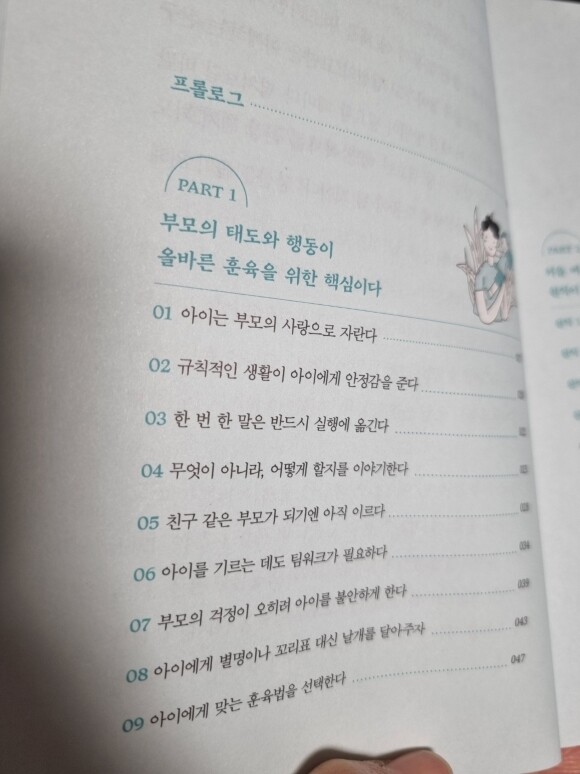 프롤로그
PART 1
부모의 태도와 행동이
올바른 훈육을 위한 핵심이다
01 아이는 부모의 사랑으로 자란다
02 규칙적인 생활이 아이에게 안정감을 준다
03 한 번 한 말은 반드시 실행에 옮긴다
04 무엇이 아니라, 어떻게 할지를 이야기한다
05 친구 같은 부모가 되기엔 아직 이르다
06 아이를 기르는 데도 팀워크가 필요하다 034
07 부모의 걱정이 오히려 아이를 불안하게 한다 039
08 아이에게 별명이나 꼬리표 대신 날개를 달아주자 043
09 아이에게 맞는 훈육법을 선택한다 047
PART